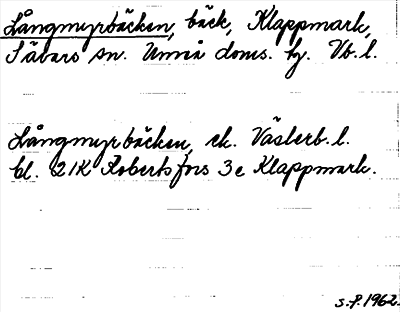 Långmyrbäcken, bäck, Klappmark,
Sävars sn. Umeå doms. hg. Vb. l.
Långmyrbäcken, ek. Västerb. l.
bl. 21K Robertsfors 3e Klappmark.
s.f. 1962.